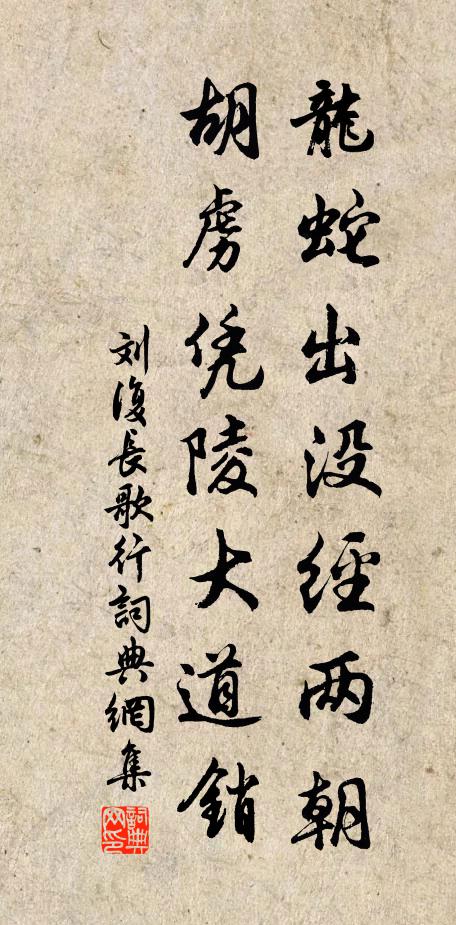 龍蛇出没經两朝
胡虏凭陵大道銷
刘復長歌行詞典網集
詞典网印